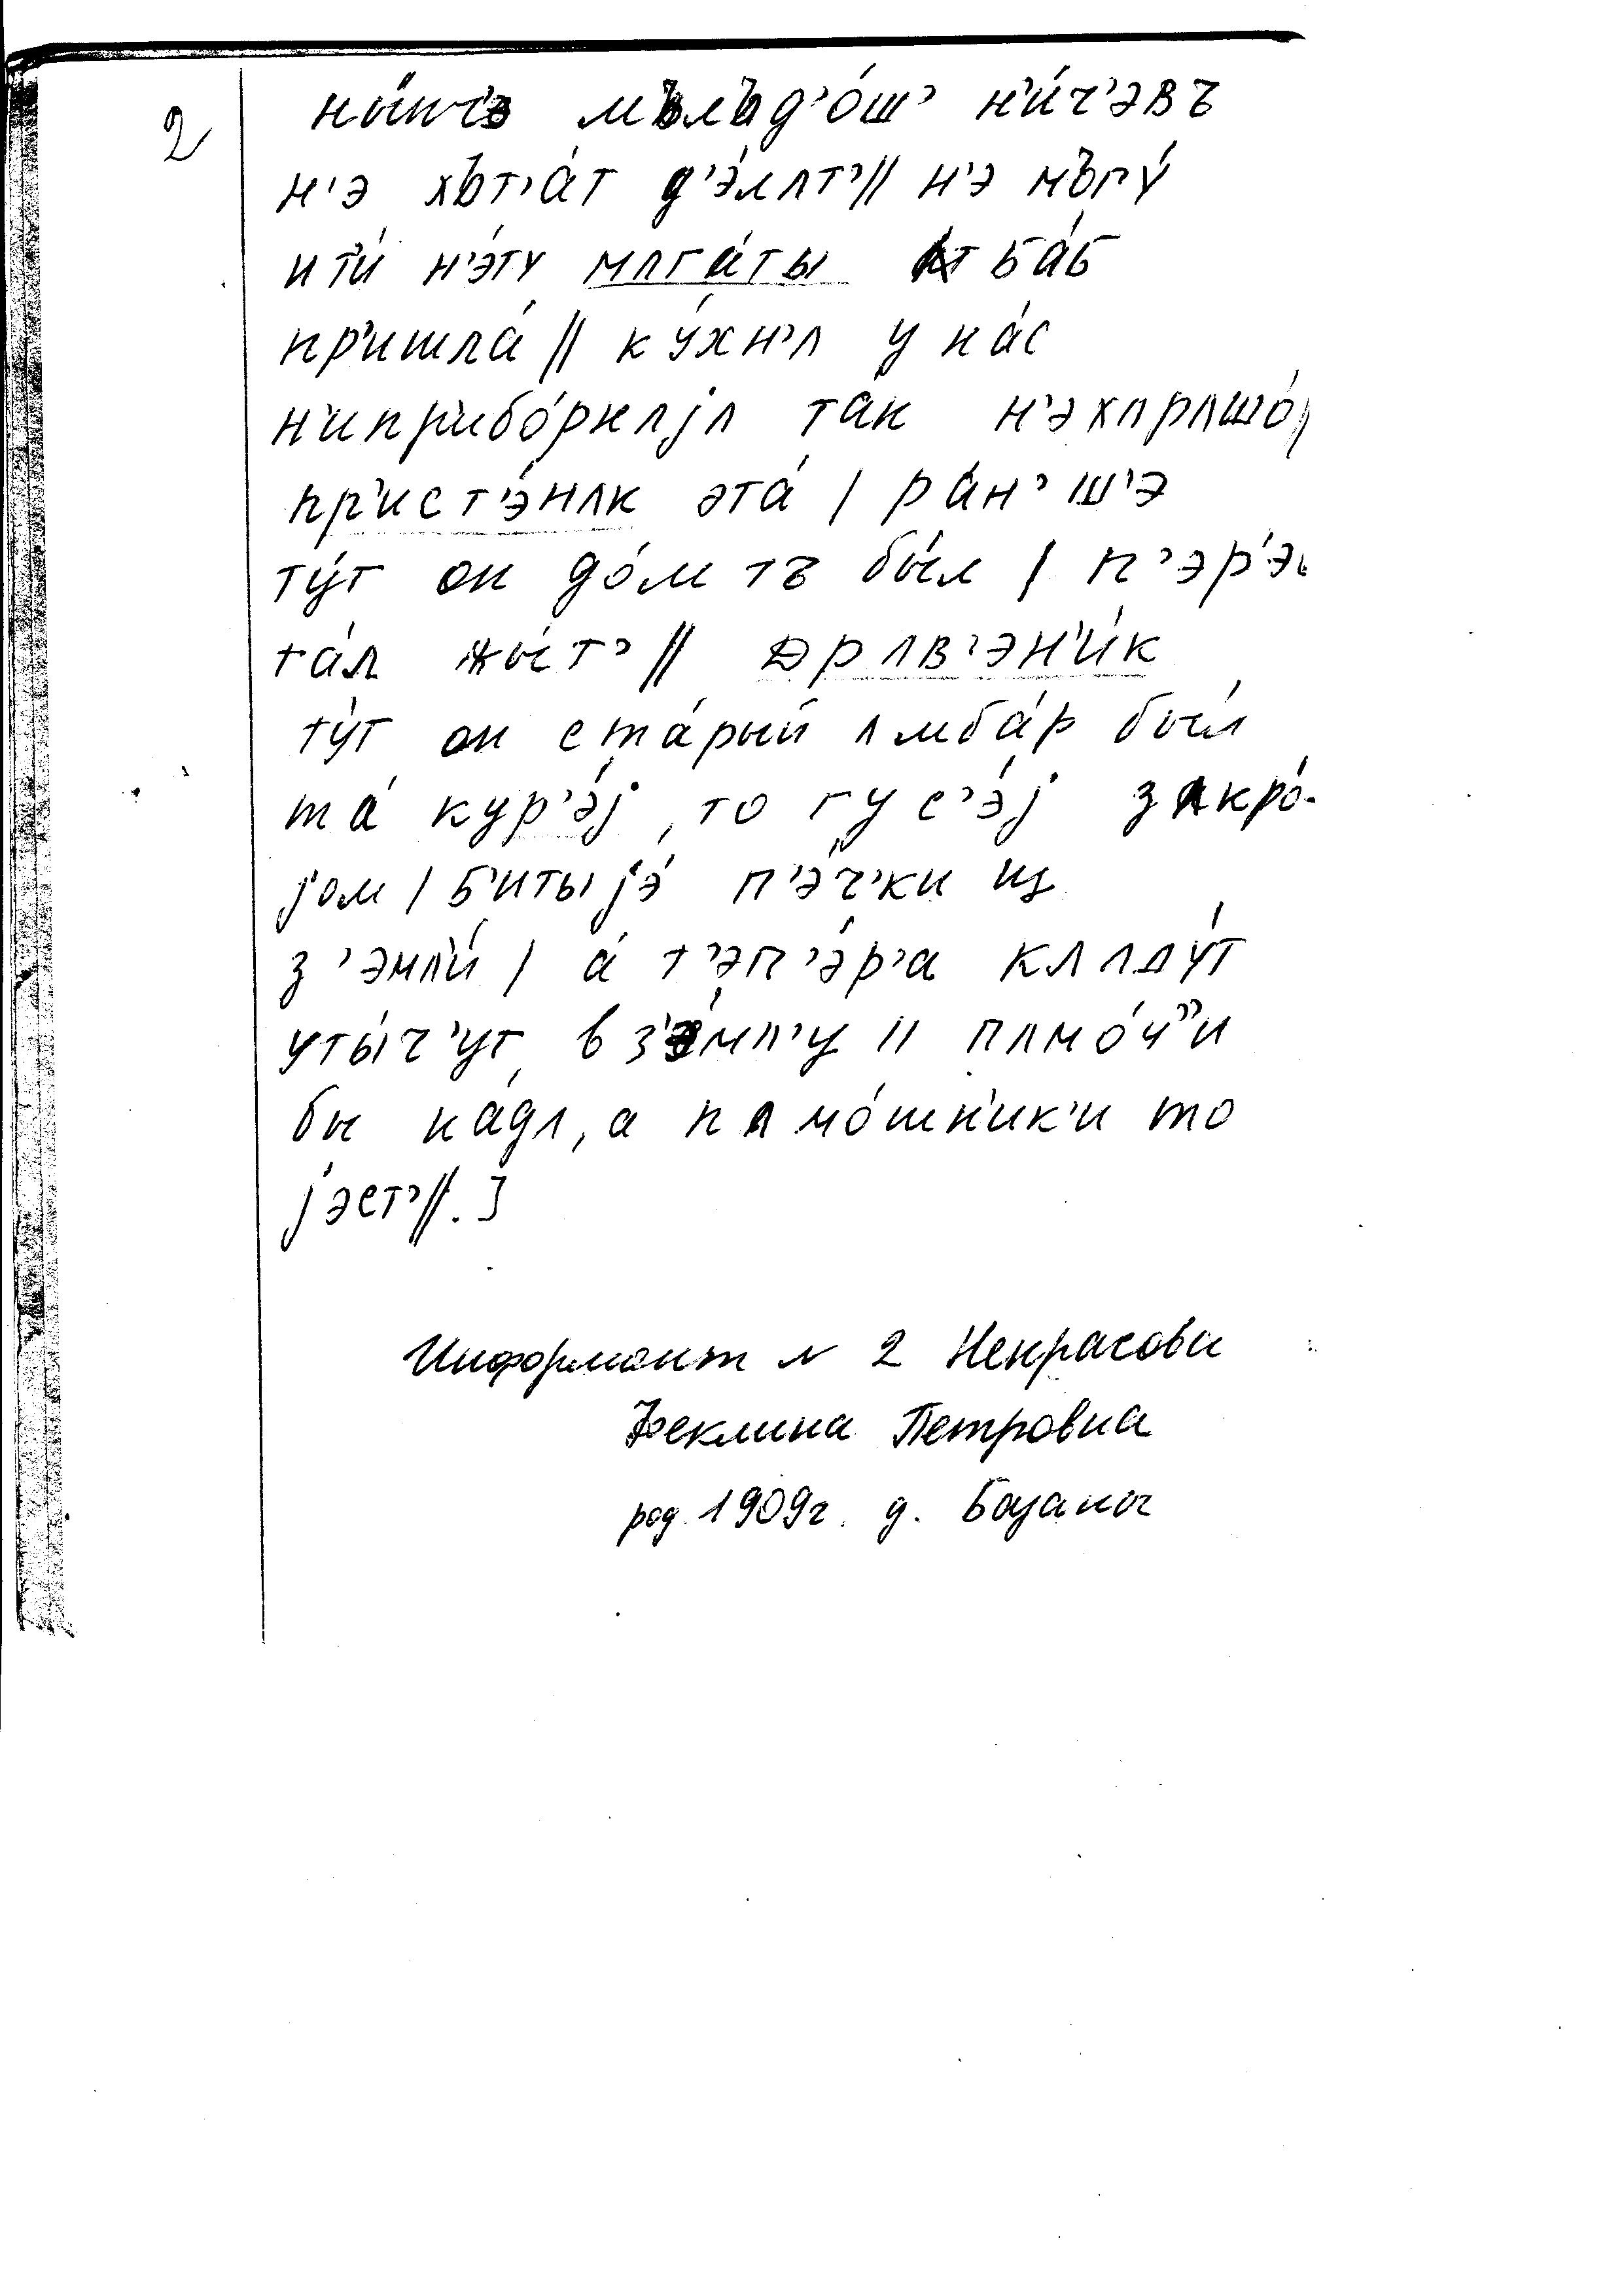 2
ны́нч'э мълъд'о́ш' н'и́ч'эвъ
н'э хът'а́т д'э́лʌт'// н'э мъгу́
ити́ н'э́ту мʌга́ты ʌт ба́б
пр'ишла́ // ку́хн'ʌ у на́с
н'ипр'ибо́рнʌjʌ та́к н'эхʌрʌшо́/
пр'ист'э́нʌк эта́ / ра́н'ш'э
ту́т он до́м тъ бы́л / п'эр'э-
та́л жы́т' // дрʌв'эн'и́к
ту́т он ста́рый ʌмба́р бы́л
та́ кур'э́j, то гус'э́j зʌкро́-
jом / б'итыjэ́ п'э́ч'ки из
з'эмл'и́ / а́ т'эп'э́р'а клʌду́т
уты́ч'ут в з'э́мл'у // пʌмо́ч''и
бы на́дʌ, а пʌмо́шн'ик'и то
jэ́ст'//.]
Информант N 2 Некрасова
Феклина Петровна
род. 1909г. д.